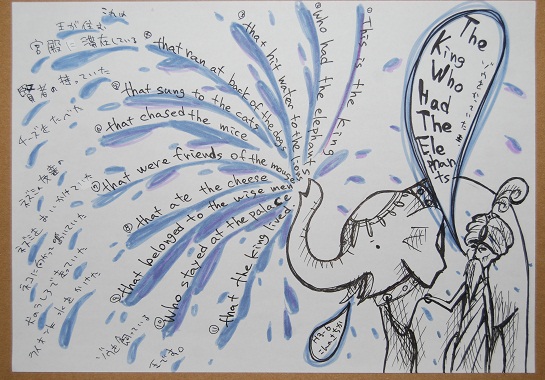 The
King
Who
Had
The
Ele
phan
ts
This is the king
who had the elephants
that hit water to the lions
that ran at back of the dogs
that sung to the cats
that chased the mice
that were friends of the mouse
that ate the cheese
that belonged to the wise men
Who stayed at the palace
that the king lived
これは
王が住む
宮殿に滞在している
賢者の持っていた
チーズをたべた
ネズミの友達の
ネズミをおいかけていた
ネコに向かって歌っていた
犬のうしろで走っていた
ライオンに水をかけた
ゾウを飼っている
王です。